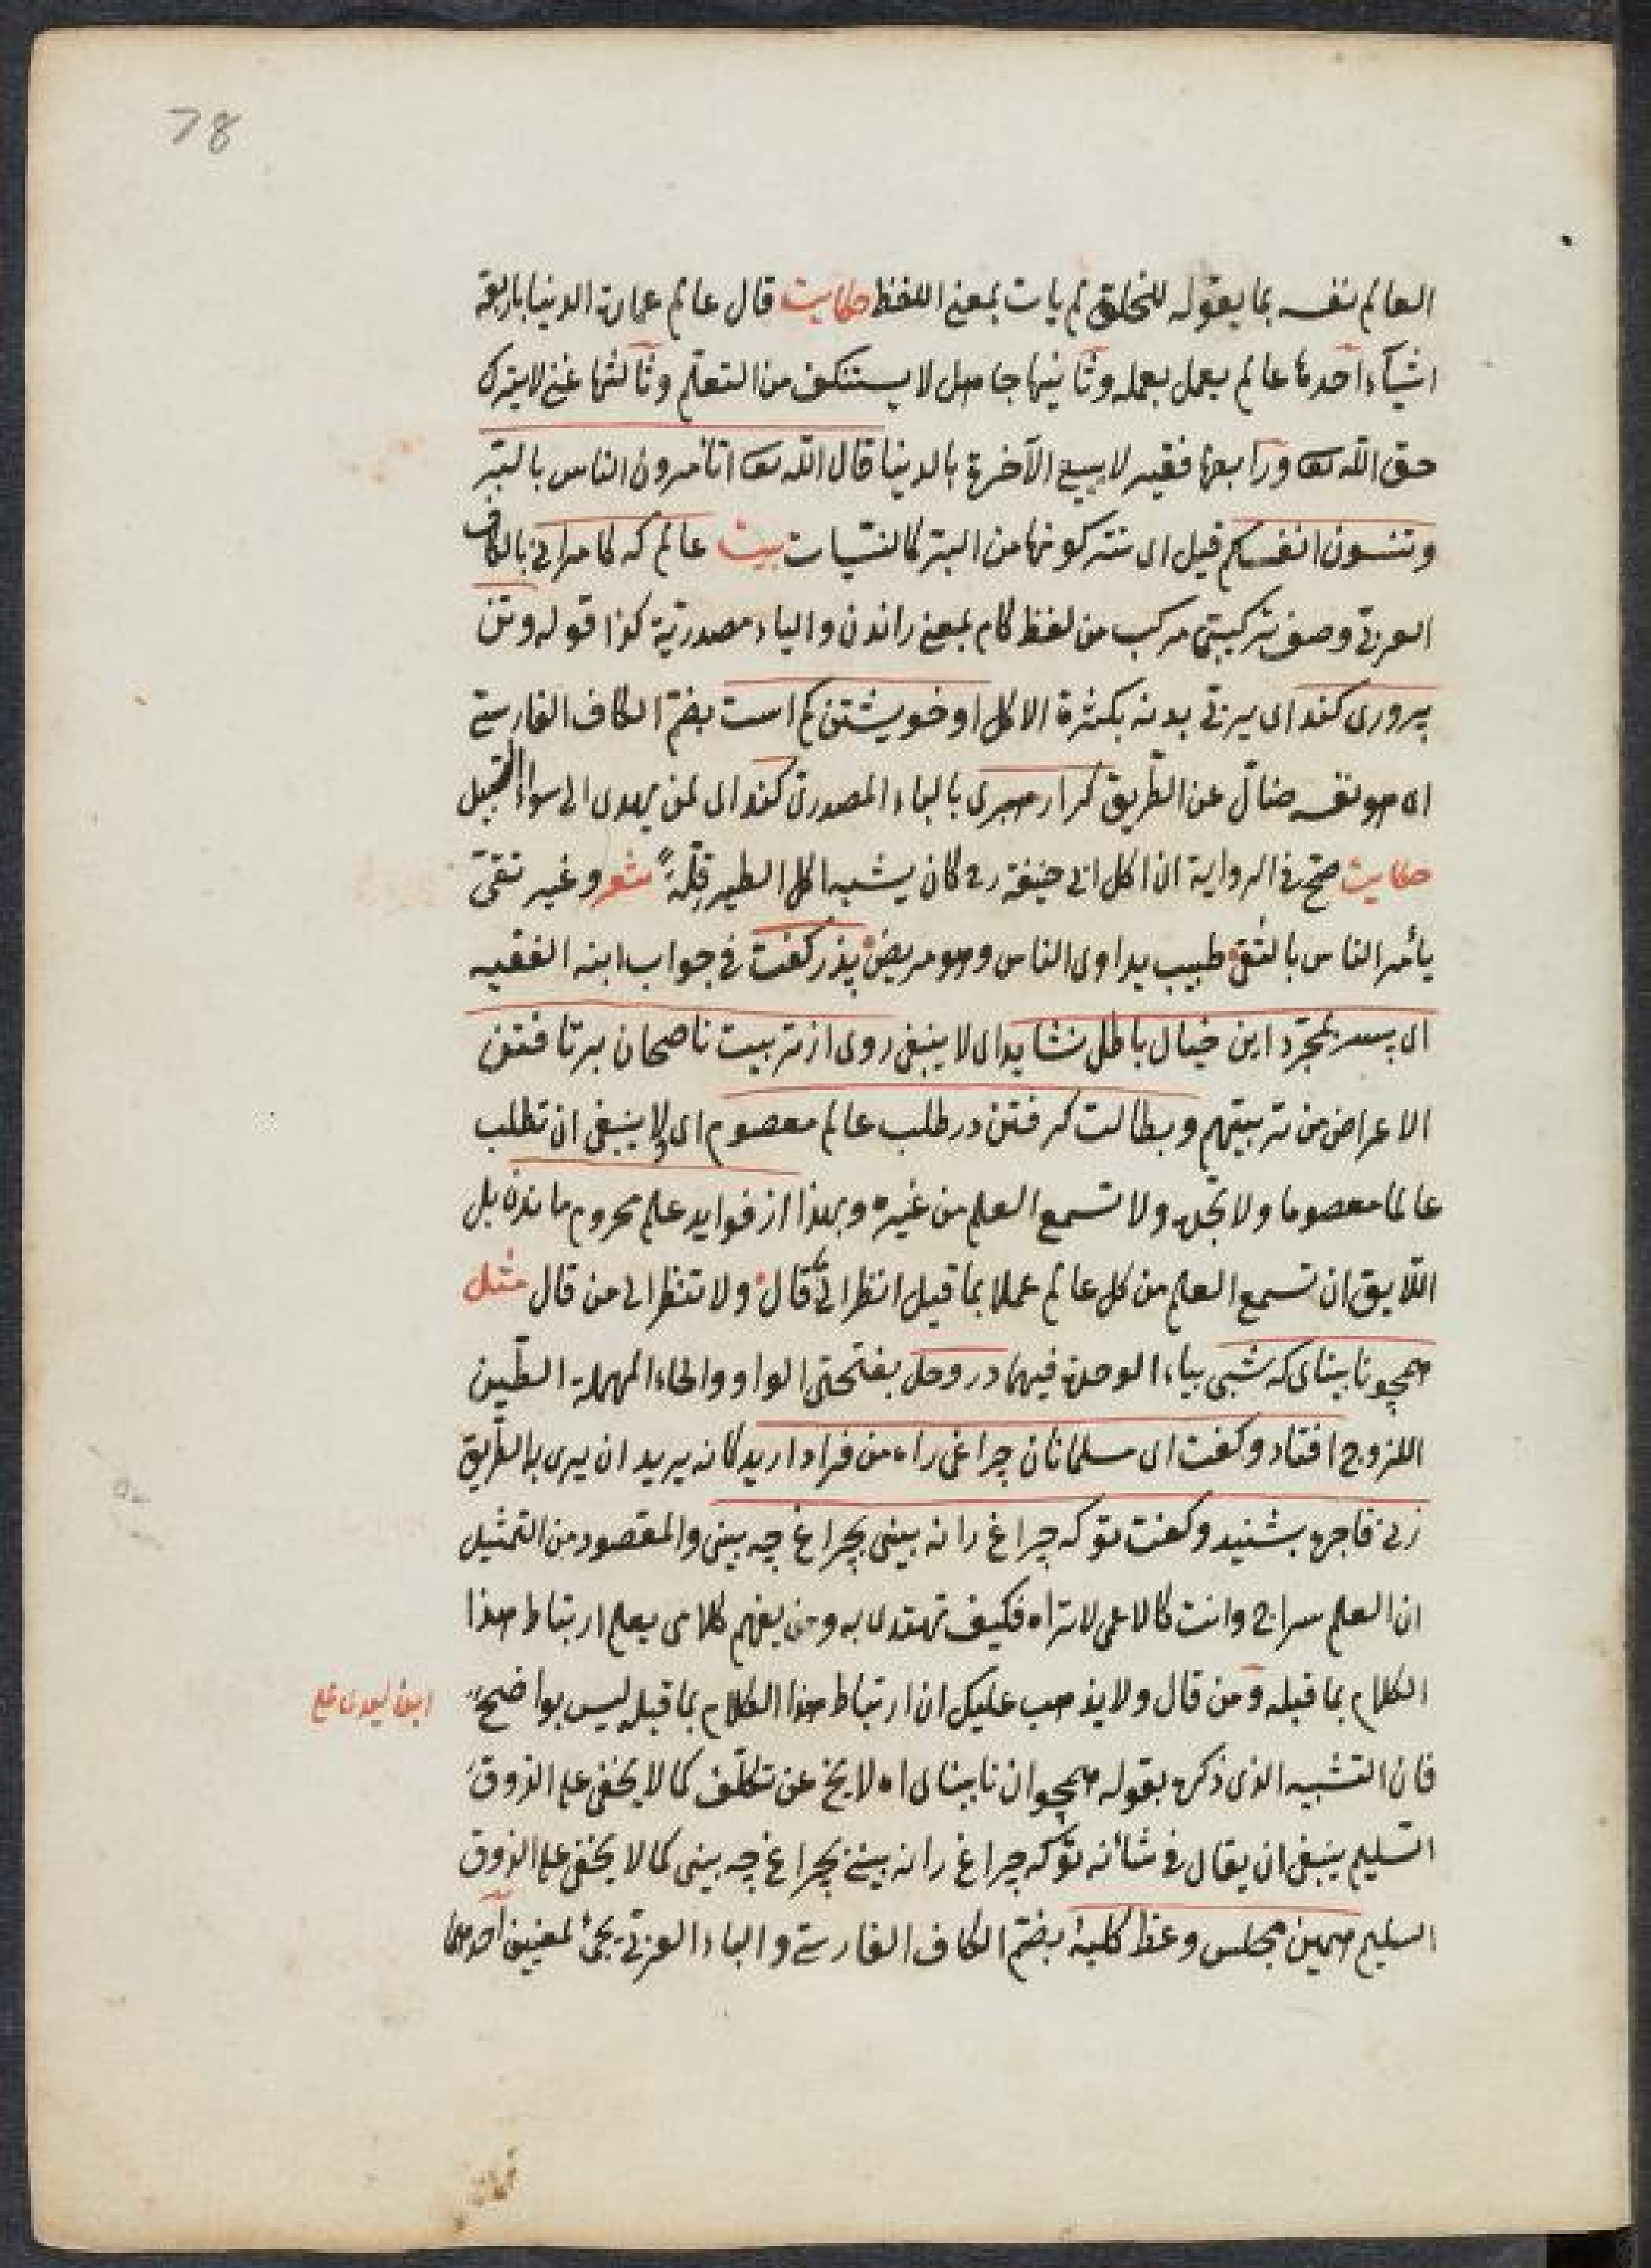 78
العالم نفسه بما يقوله للخلق لم يات بمعنى اللفظ حكايت قال عالم عمارة الدنيا باربعة
اشيآء احدها عالم يعمل بعمله وثانيها جاهل لا يستنكف من التعلم وثالثها غنى لا يترك
حق الله تعا ورابعها فقير لا يبيع الآخرة بالدنيا قال الله تعا اتأمرون الناس بالبّر
وتنسون انفسكم قيل اى تتركونها من البر كالنسيات بيت عالم كه كامرانى بالكاف
العربى وصف تركيبى مركب من لفظ كام بمعنى راندن والياء مصدرية كذا قوله وتن
پرورى كند اى يربى بدنه بكثرة الاكل او خويشتن كم است بضم الكاف الفارسى
اى هو نفسه ضالّ عن الطريق كرا رهبرى بالياء المصدرى كند اى لمن يهدى الى سواء السبيل
حكايت صح فى الرواية ان اكل ابى حنيفة رح كان يشبه اكل الطير قلّةً شعر وغير تقىّ
يأمر الناس بالتقى طبيب يداوى الناس وهو مريض پذر كفت فى جواب ابنه الفقيه
اى پسر بمجرد اين خيال باطل نشايد اى لا ينبغى روى از تربيت ناصحان برتافتن
الاعراض من تربيتهم وبطالت كرفتن در طلب عالم معصوم اى ولا ينبغى ان تطلب
عالما معصوما ولا تجده ولا تسمع العلم من غيره وبهذا از فوايد علم محروم ماندن بل
اللايق ان تسمع العلم من كل عالم عملا بما قيل انظر الى ما قال ولا تنظر الى من قال مثل
همچو نابيناى كه شبى بياء الوحدة فيهما در وحل بفتحتى الواو والحاء المهملة الطين
اللزوج افتاد وكفت اى مسلمانان چراغى راه من فرا داريد كانه يريد ان يرى بها الطريق
زنى فاجره بشنيد وكفت تو كه چراغ را نه بينى بچراغ چه بينى والمقصود من التمثيل
ان العلم سراج وانت كالاعمى لا تراه فكيف تهتدى به ومن يفهم كلامى يعلم ارتباط هذا
الكلام بما قبله ومن قال ولا يذهب عليك ان ارتباط هذا الكلام بما قبله ليس بواضح
فان التشبيه الذى ذكره بقوله همچو ان نابيناى اه لا يخ عن تكلّف كما لا يخفى على الذوق
السليم ينبغى ان يقال فى شأنه تو كه چراغ را نه بينى بچراغ چه بينى كما لا يخفى على الذوق
السليم همين مجلس وعظ كلبه بضم الكاف الفارسى والباء العربى يجئ لمعنيين احدهما